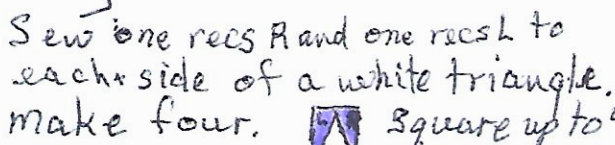 Sew one recs R and one recs L to
each side of a white triangle.
Make four. Square up to